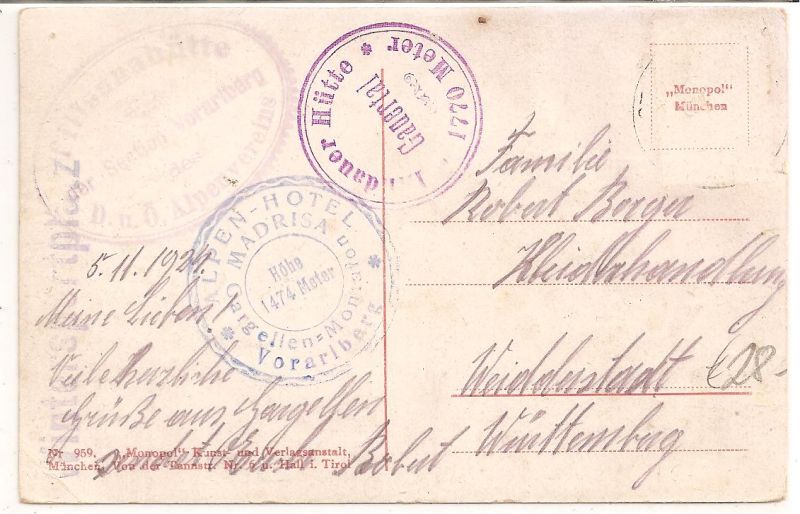 hütte
der Sektion Vorarlberg
des
D. u. Ö. Alpenvereins
Lindauer Hütte * 1770 Meter
Gauertal
ALPEN-HOTEL
MADRISA
Höhe
1474 Meter
Gargellen=Montavon
* Vorarlberg *
„Monopol“
München
5.11.1929.
Meine Lieben!
Viele herzliche
Grüße aus Gargellen
Euer Robert
Familie
Robert Berger
Kleiderhandlung
Weilderstadt
Württemberg
€28-
Nr 959. „Monopol“ Kunst- und Verlagsanstalt,
München, Von der Tannstr. Nr. 6 u. Hall i. Tirol